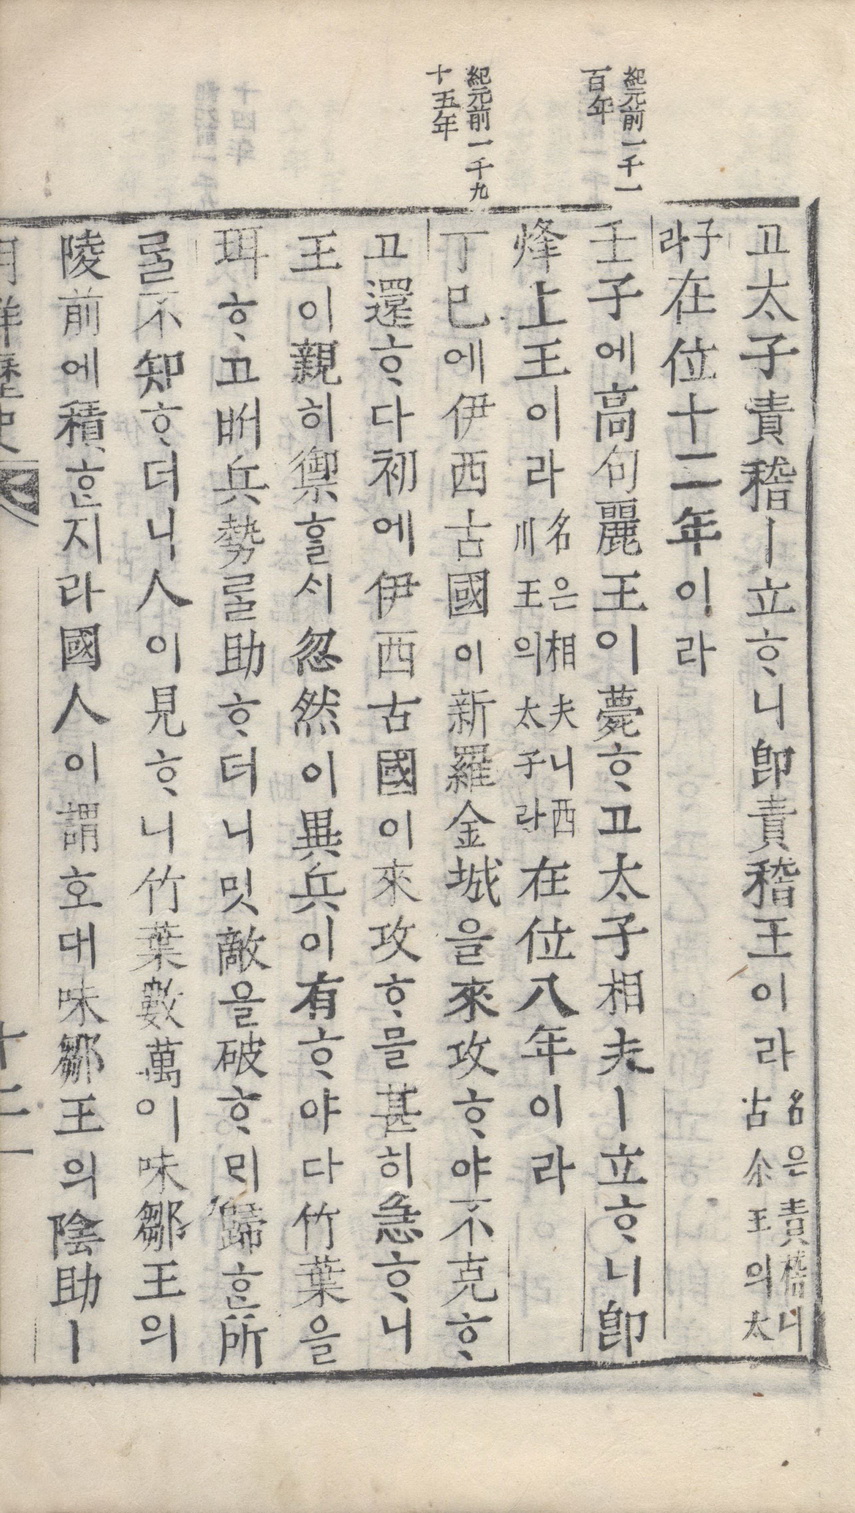 紀元前一千一
百年
紀元前一千九
十五年
고太子責稽ㅣ立ᄒᆞ니卽責稽王이라名은責稽니
古尒王의太
子
라在位十二年이라
壬子에高句麗王이薨ᄒᆞ고太子相夫ㅣ立ᄒᆞ니卽
烽上王이라名은相夫니西
川王의太子라在位八年이라
丁巳에伊西古國이新羅金城을來攻ᄒᆞ야不克ᄒᆞ
고還ᄒᆞ다初에伊西古國이來攻ᄒᆞ믈甚히急ᄒᆞ니
王이親히禦ᄒᆞᆯᄉᆡ忽然이異兵이有ᄒᆞ야다竹葉을
珥ᄒᆞ고助兵勢ᄅᆞᆯ助ᄒᆞ더니밋敵을破ᄒᆞᄆᆡ歸ᄒᆞᆫ所
ᄅᆞᆯ不知ᄒᆞ더니人이見ᄒᆞ니竹葉數萬이味鄒王의
陵前에積ᄒᆞᆫ지라國人이謂호대味鄒王의陰助ㅣ
十二